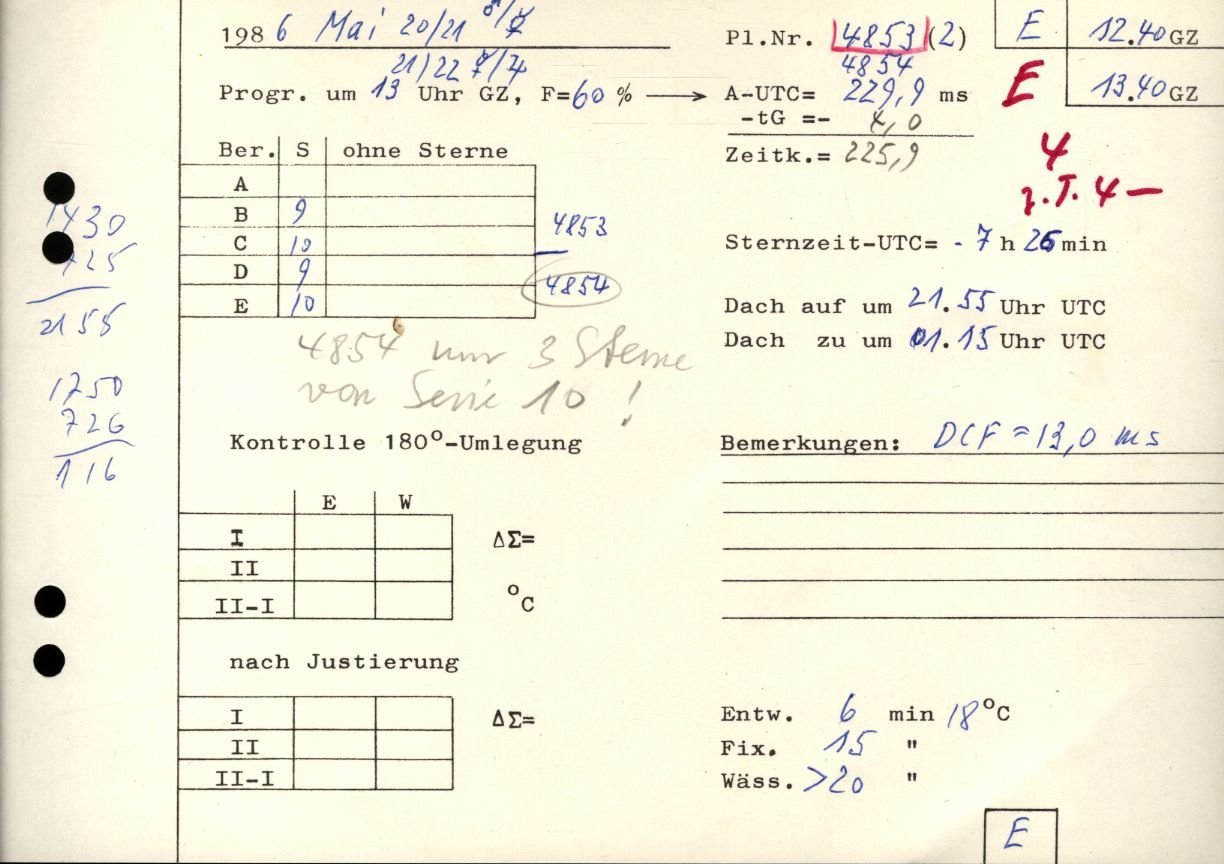 1986 Mai 20/21 ♂/☿
21/22 ☿/♃
Progr. um 13 Uhr GZ, F=60 % ⟶
Pl.Nr. 4853 (2)
4854
A-UTC= 229,9 ms
-tG =- 4,0
Zeitk.= 225,9
E 12.40 GZ
E 13.40 GZ
4
z.T. 4 —
Ber. S ohne Sterne
A
B 9
C 10
D 9
E 10
4853
4854
1430
725
2155
1750
726
116
4854 nur 3 Sterne
von Serie 10 !
Sternzeit-UTC= - 7 h 26 min
Dach auf um 21.55 Uhr UTC
Dach zu um 01.15 Uhr UTC
Kontrolle 180°-Umlegung
Bemerkungen: DCF = 13,0 ms
E W
I
II
II-I
ΔΣ=
°C
nach Justierung
I
II
II-I
ΔΣ=
Entw. 6 min 18 °C
Fix. 15 "
Wäss. >20 "
E